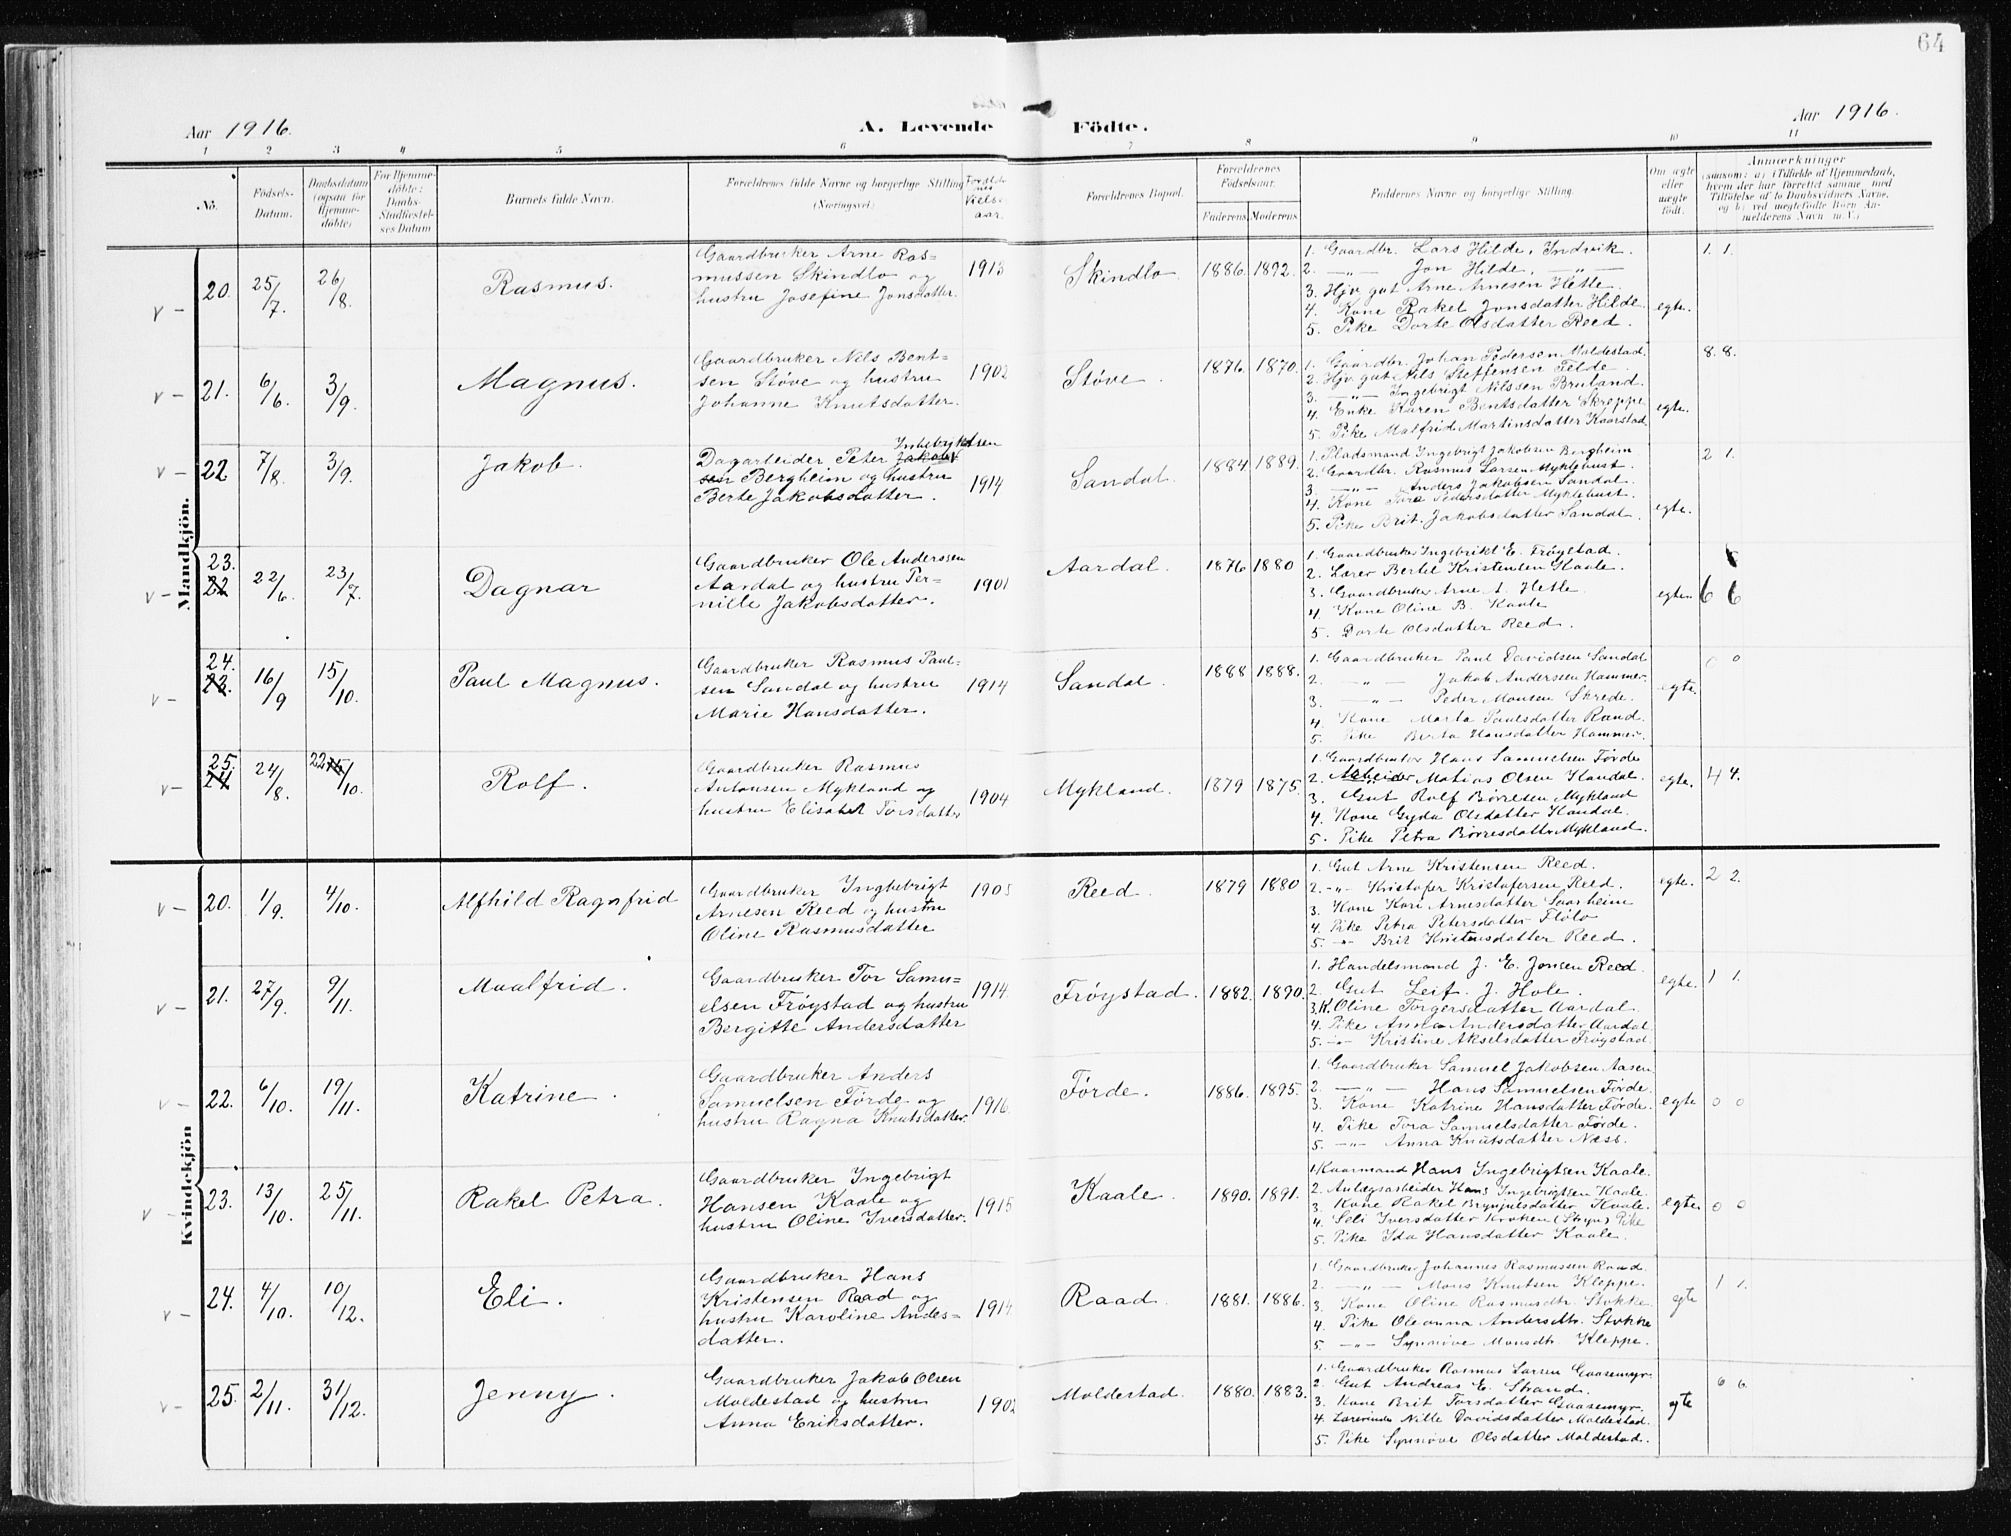 64
Aar 1916.
A. Levende Födte.
Aar 1916.
1 2 3 4 5 6 7 8 9 10 11
No.
Födsels-Datum.
Daabsdatum (ogsaa for Hjemmedöbte)
For Hjemmedöbte: Daabs-Stadfæstelses Datum
Barnets fulde Navn.
Forældrenes fulde Navne og borgerlige Stilling (Næringsvei)
Forældrenes Vielsesaar
Forældrenes Bopæl.
Forældrenes Födselsaar.
Faderens Moderens
Faddernes Navne og borgerlige Stilling.
Om ægte eller uægte födt.
Anmærkninger
(saasom: a) i Tilfælde af Hjemmedaab,
hvem der har forrettet samme med
Tilföielse af to Daabsvidners Navne,
og b) ved uægtefödte Börn An-
melderens Navn m. V.)
Mandkjön.
V – 20. 25/7. 26/8. Rasmus.
Gaardbruker Arne Ras=
mussen Skindlo og
hustru Josefine Jonsdatter.
1913
Skindlo. 1886. 1892.
1. Gaardbr. Lars Hilde, Indvik.
2. —"— Jon Hilde, —"—
3. Hjv. gut Arne Arnesen Hetle.
4. Kone Rakel Jonsdatter Hilde.
5. Pike Dorte Olsdatter Reed.
egte.
1. 1.
V – 21. 6/6. 3/9. Magnus.
Gaardbruker Nils Bent=
sen Støve og hustru
Johanne Knutsdatter.
1902
Støve. 1876. 1870.
1. Gaardbr. Johan Pedersen Moldestad.
2. Hjv. gut Nils Steffensen Felde.
3. —"— Ingebrigt Nilssen Bruland.
4. Enke Karen Bentsdatter Skreppe
5. Pike Malfrid Martinsdatter Kaarstad
egte.
8. 8.
V – 22 7/8. 3/9. Jakob.
Ingebrigtsen
Dagarbeider Peter Jakob
sen Bergheim og hustru
Berte Jakobsdatter.
1914
Sandal. 1884 1889.
1. Pladsmand Ingebrigt Jakobsen Bergheim
2. Gaardbr. Rasmus Larsen Myklebust.
3. —"— Anders Jakobsen Sandal.
4. Kone Tora Pedersdatter Myklebust.
5. Pike Brit Jakobsdatter Sandal.
egte.
2 1.
V – 23. 22 22/6. 23/7. Dagnar
Gaardbruker Ole Anderssen
Aardal og hustru Per=
nille Jakobsdatter.
1901
Aardal. 1876 1880
1. Gaardbruker Ingebrikt E. Frøystad.
2. Lærer Bertel Kristensen Kaale.
3. Gaardbruker Arne A. Hetle
4. Kone Oline B. Kaale
5. Dorte Olsdatter Reed.
egten
6 6
V – 24. 23. 16/9 15/10. Paul Magnus.
Gaardbruker Rasmus Paul=
sen Sandal og hustru
Marie Hansdatter.
1914
Sandal. 1888 1888.
1. Gaardbruker Paul Davidsen Sandal
2. —"— Jakob Anderssen Hammer.
3. —"— Peder Monsen Skrede.
4. Kone Marta Paulsdatter Rand.
5. Pike Berta Hansdatter Hammer.
egte.
0 0
V – 25. 24 24/8. 22/10. Rolf.
Gaardbruker Rasmus
Antonsen Mykland og
hustru Elisabet Torsdatter
1904
Mykland. 1879 1875.
1. Gaardbruker Hans Samuelsen Førde
2. Arbeider Matias Olsen Handal.
3. Gut Rolf Børresen Mykland
4. Kone Gyda Olsdatter Handal.
5. Pike Petra Børresdatter Mykland.
egte.
4 4.
Kvindekjön
V – 20. 1/9. 4/10. Alfhild Ragnfrid
Gaardbruker Inghebrigt
Arnesen Reed og hustru
Oline Rasmusdatter
1905
Reed. 1879 1880
1. Gut Arne Kristensen Reed.
2. -"- Kristofer Kristofersen Reed.
3. Kone Kari Arnesdatter Saarheim
4. Pike Petra Petersdatter Flølo
5. -"- Brit Kristensdatter Reed.
egte.
2 2.
V – 21. 27/9. 9/11. Maalfrid.
Gaardbruker Tor Samu=
elsen Frøystad og hustru
Bergitte Andersdatter
1914.
Frøystad. 1882. 1890.
1. Handelsmand J. E. Jonsen Reed.
2. Gut Leif J. Hole.
3. K. Oline Torgersdatter Aardal.
4. Pike Anna Andersdatter Aardal
5. -"- Kristine Akselsdatter Frøystad.
egte.
1 1.
V – 22. 6/10. 19/11. Katrine.
Gaardbruker Anders
Samuelsen Førde og
hustru Ragna Knutsdatter.
1916.
Førde. 1886. 1895.
1. Gaardbruker Samuel Jakobsen Aasen
2. —"— Hans Samuelsen Førde.
3. Kone Katrine Hansdatter Førde.
4. Pike Tora Samuelsdatter Førde.
5. —"— Anna Knutsdatter Næss.
egte
0 0
V – 23. 13/10. 25/11. Rakel Petra.
Gaardbruker Ingebrigt
Hansen Kaale og
hustru Oline Iversdatter.
1915
Kaale. 1890. 1891.
1. Kaarmand Hans Ingebrigtsen Kaale.
2. Anlegsarbeider Hans Ingebrigtsen Kaale.
3. Kone Rakel Brynjulsdatter Kaale.
4. Seli Iversdatter Kroken (Stryn) Pike
5. Pike Ida Hansdatter Kaale.
egte.
0 0
V – 24. 4/10. 10/12. Eli.
Gaardbruker Hans
Kristensen Raad og
hustru Karoline Anders=
datter.
1914
Raad. 1881. 1886.
1. Gaardbruker Johannes Rasmussen Raad.
2. —"— Mons Knutsen Kleppe.
3. Kone Oline Rasmusdtr. Stokke.
4. Pike Oleanna Andersdtr. Stokke
5. —"— Synnøve Monsdtr. Kleppe.
egte
1 1.
V – 25. 2/11. 31/12. Jenny.
Gaardbruker Jakob Olsen
Moldestad og hustru
Anna Eriksdatter.
1902
Moldestad. 1880. 1883.
1. Gaardbruker Rasmus Larsen Gaasemyr.
2. Gut Andreas E. Strand.
3. Kone Brit Torsdatter Gaasemyr.
4. Lærerinde Nille Davidsdatter Moldestad.
5. Pike Synnøve Olsdatter Moldestad.
egte
6 6.